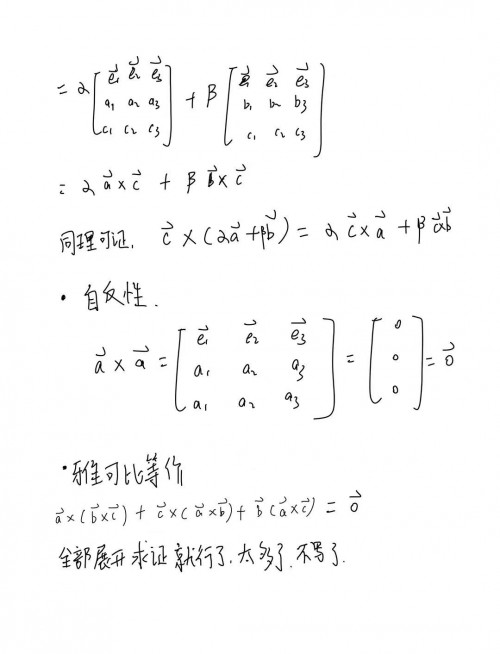 = α [ e⃗₁ e⃗₂ e⃗₃ ; a₁ a₂ a₃ ; c₁ c₂ c₃ ] + β [ e⃗₁ e⃗₂ e⃗₃ ; b₁ b₂ b₃ ; c₁ c₂ c₃ ]
= α a⃗ × c⃗ + β b⃗ × c⃗
同理可证, c⃗ × (αa⃗ + βb⃗) = α c⃗ × a⃗ + β c⃗×b⃗
· 自反性.
a⃗ × a⃗ = [ e⃗₁ e⃗₂ e⃗₃ ; a₁ a₂ a₃ ; a₁ a₂ a₃ ] = [ 0 ; 0 ; 0 ] = 0⃗
· 雅可比等价
a⃗×(b⃗×c⃗) + c⃗×(a⃗×b⃗) + b⃗(a⃗×c⃗) = 0⃗
全部展开求证就行了, 太多了, 不写了.